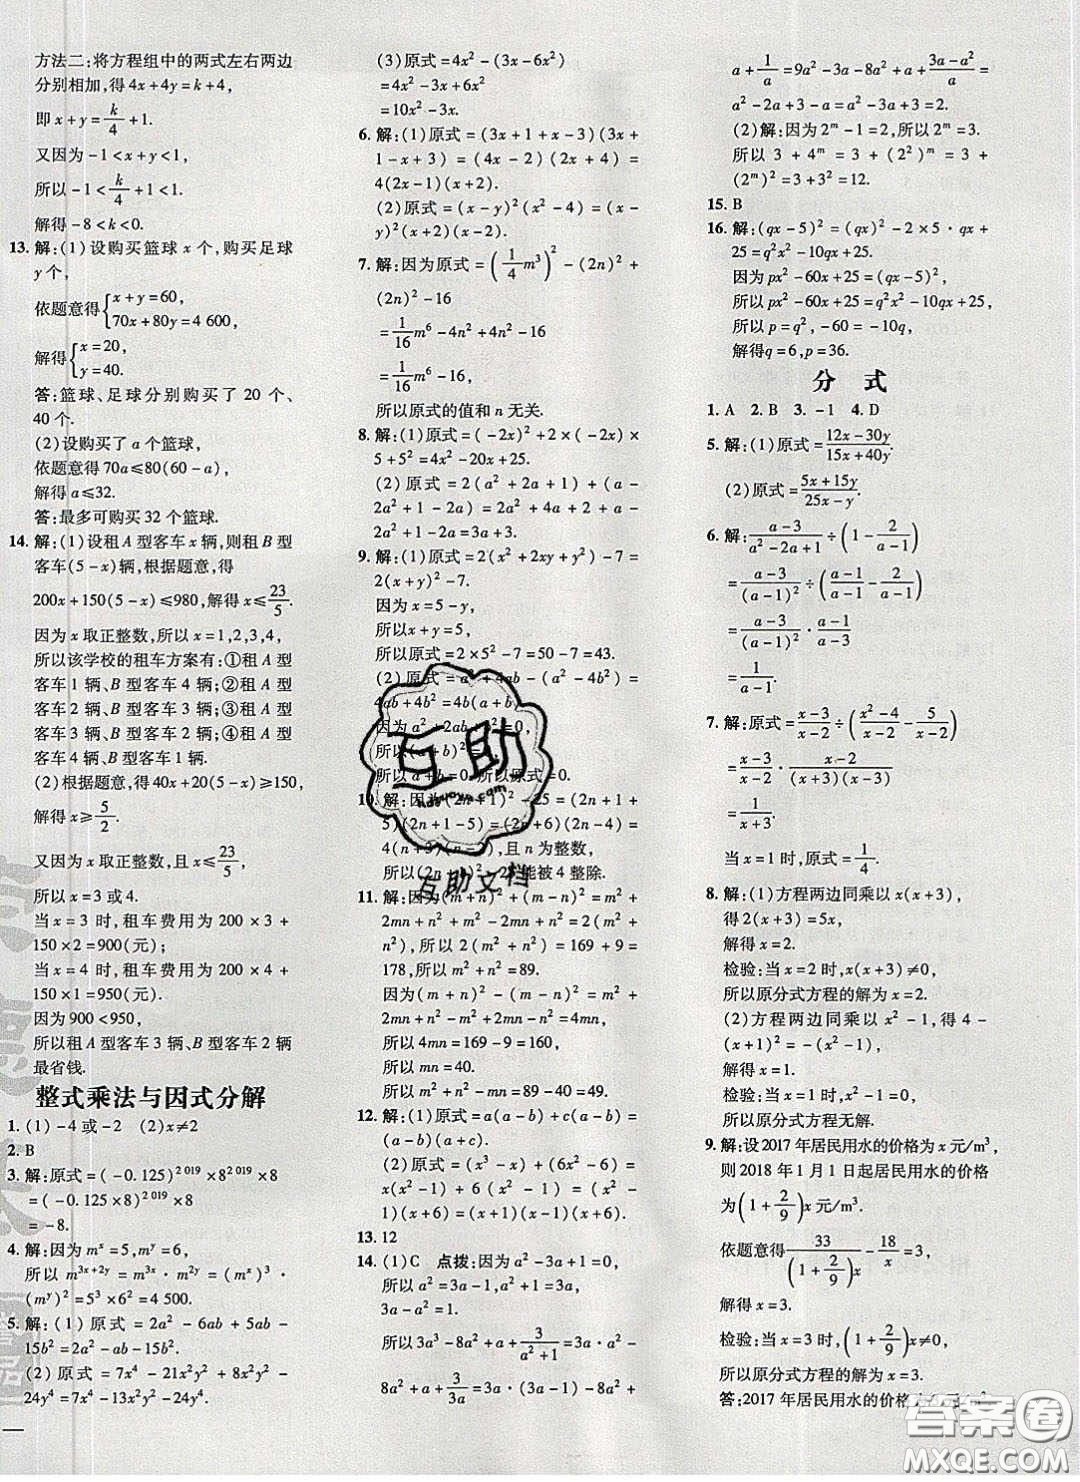 方法二:将方程组中的两式左右两边
分别相加,得4x+4y=k+4,
即x+y=k/4+1.
又因为-1<x+y<1,
所以-1<k/4+1<1.
解得-8<k<0.
13.解:(1)设购买篮球x个,购买足球
y个,
依题意得{x+y=60,
70x+80y=4 600,
解得{x=20,
y=40.
答:篮球、足球分别购买了20个、
40个.
(2)设购买了a个篮球,
依题意得70a≤80(60-a),
解得a≤32.
答:最多可购买32个篮球.
14.解:(1)设租A型客车x辆,则租B型
客车(5-x)辆,根据题意,得
200x+150(5-x)≤980,解得x≤23/5.
因为x取正整数,所以x=1,2,3,4,
所以该学校的租车方案有:①租A型
客车1辆、B型客车4辆;②租A型
客车2辆、B型客车3辆;③租A型
客车3辆、B型客车2辆;④租A型
客车4辆、B型客车1辆.
(2)根据题意,得40x+20(5-x)≥150,
解得x≥5/2.
又因为x取正整数,且x≤23/5,
所以x=3或4.
当x=3时,租车费用为200×3+
150×2=900(元);
当x=4时,租车费用为200×4+
150×1=950(元).
因为900<950,
所以租A型客车3辆、B型客车2辆
最省钱.
整式乘法与因式分解
1.(1)-4或-2 (2)x≠2
2.B
3.解:原式=(-0.125)^2 019×8^2 019×8
=(-0.125×8)^2 019×8
=-8.
4.解:因为m^x=5,m^y=6,
所以m^3x+2y=m^3x·m^2y=(m^x)^3·
(m^y)^2=5^3×6^2=4 500.
5.解:(1)原式=2a²-6ab+5ab-
15b²=2a²-ab-15b².
(2)原式=7x⁴-21x²y²+8x²y²-
24y⁴=7x⁴-13x²y²-24y⁴.
(3)原式=4x²-(3x-6x²)
=4x²-3x+6x²
=10x²-3x.
6.解:(1)原式=(3x+1+x-3)(3x+
1-x+3)=(4x-2)(2x+4)=
4(2x-1)(x+2).
(2)原式=(x-y)²(x²-4)=(x-
y)²(x+2)(x-2).
7.解:因为原式=(1/4m³)²-(2n)²+
(2n)²-16
=1/16m⁶-4n²+4n²-16
=1/16m⁶-16,
所以原式的值和n无关.
8.解:(1)原式=(-2x)²+2×(-2x)×
5+5²=4x²-20x+25.
(2)原式=2(a²+2a+1)+(a-
2a²+1-2a)=2a²+4a+2+a-
2a²+1-2a=3a+3.
9.解:(1)原式=2(x²+2xy+y²)-7=
2(x+y)²-7.
因为x=5-y,
所以x+y=5,
所以原式=2×5²-7=50-7=43.
(2)原式=a²+4ab-(a²-4b²)=
4ab+4b²=4b(a+b)
因为a²+2ab+b²=0,
所以(a+b)²=0,
所以a+b=0.所以原式=0.
10.解:因为(2n+1)²-25=(2n+1+
5)(2n+1-5)=(2n+6)(2n-4)=
4(n+3)(n-2),且n为整数,
所以(2n+1)²-25能被4整除.
11.解:因为(m+n)²+(m-n)²=m²+
2mn+n²+m²-2mn+n²=2(m²+
n²),所以2(m²+n²)=169+9=
178,所以m²+n²=89.
因为(m+n)²-(m-n)²=m²+
2mn+n²-m²+2mn-n²=4mn,
所以4mn=169-9=160,
所以mn=40.
所以m²+n²-mn=89-40=49.
12.解:(1)原式=a(a-b)+c(a-b)=
(a-b)(a+c).
(2)原式=(x³-x)+(6x²-6)=
x(x²-1)+6(x²-1)=(x²-
1)(x+6)=(x+1)(x-1)(x+6).
13.12
14.(1)C 点拨:因为a²-3a+1=0,
所以a²=3a-1,a²+1=3a,
3a-a²=1.
所以3a³-8a²+a+3/a²+1=3a·a²-
8a²+a+3/3a=3a(3a-1)-8a²+
a+1/a=9a²-3a-8a²+a+3a-a²/a=
a²-2a+3-a=3a-a=2.
(2)解:因为2^m-1=2,所以2^m=3.
所以3+4^m=3+(2²)^m=3+
(2^m)²=3+3²=12.
15.B
16.解:(qx-5)²=(qx)²-2×5·qx+
25=q²x²-10qx+25.
因为px²-60x+25=(qx-5)²,
所以px²-60x+25=q²x²-10qx+25,
所以p=q²,-60=-10q,
解得q=6,p=36.
分 式
1.A 2.B 3.-1 4.D
5.解:(1)原式=12x-30y/15x+40y.
(2)原式=5x+15y/25x-y.
6.解:a-3/a²-2a+1÷(1-2/a-1)
=a-3/(a-1)²÷(a-1/a-1-2/a-1)
=a-3/(a-1)²·a-1/a-3
=1/a-1.
7.解:原式=x-3/x-2÷(x²-4/x-2-5/x-2)
=x-3/x-2·x-2/(x+3)(x-3)
=1/x+3.
当x=1时,原式=1/4.
8.解:(1)方程两边同乘以x(x+3),
得2(x+3)=5x,
解得x=2.
检验:当x=2时,x(x+3)≠0,
所以原分式方程的解为x=2.
(2)方程两边同乘以x²-1,得4-
(x+1)²=-(x²-1),
解得x=1.
检验:当x=1时,x²-1=0,
所以原分式方程无解.
9.解:设2017年居民用水的价格为x元/m³,
则2018年1月1日起居民用水的价格
为(1+2/9)x元/m³.
依题意得33/(1+2/9)x-18/x=3,
解得x=3.
检验:当x=3时,(1+2/9)x≠0,
所以原分式方程的解为x=3.
答:2017年居民用水的价格
互助
huzuoye.com
互助文档
答案圈
MXQE.COM